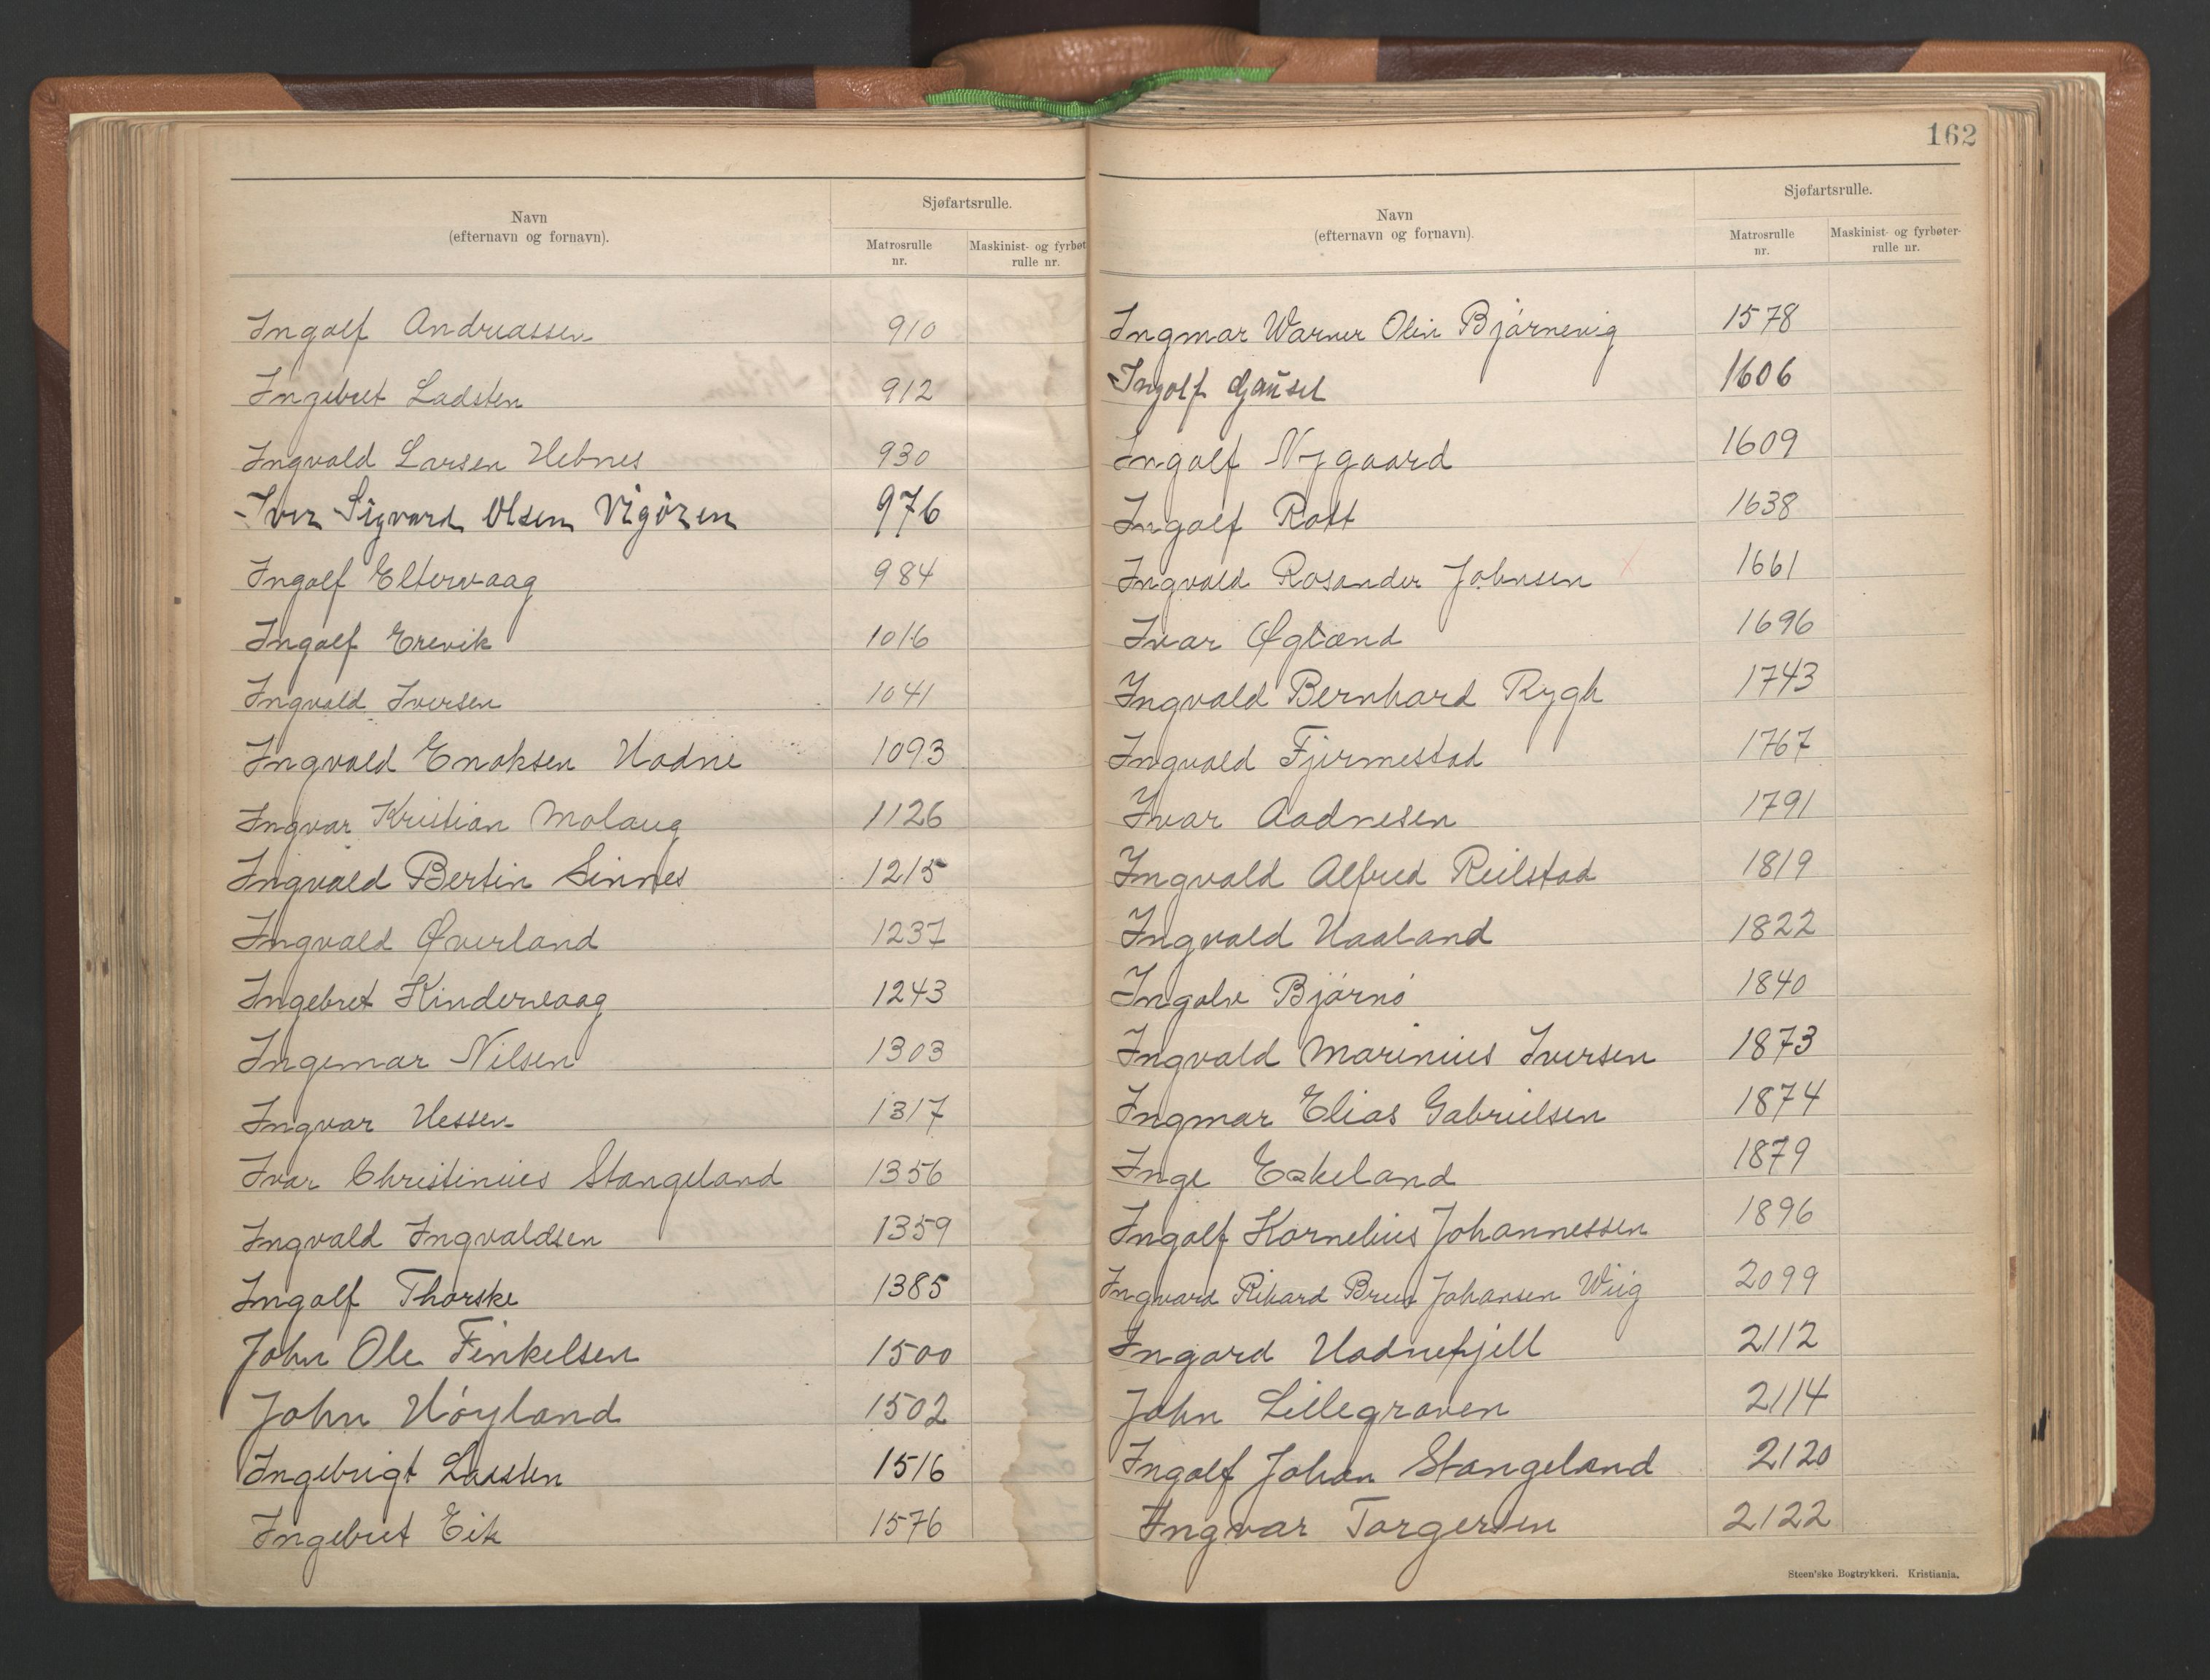 Navn
(efternavn og fornavn).
Sjøfartsrulle.
Matrosrulle
nr.
Maskinist- og fyrbøt
rulle nr.
Ingolf Andreassen 910
Ingebret Ladsten 912
Ingvald Larsen Hebnes 930
Iver Sigvard Olsen Vigören 976
Ingolf Eltervaag 984
Ingolf Erevik 1016
Ingvald Iversen 1041
Ingvald Enoksen Hadne 1093
Ingvar Kristian Molaug 1126
Ingvald Bertin Sinnes 1215
Ingvald Øverland 1237
Ingebret Kindervaag 1243
Ingemar Nilsen 1303
Ingvar Hessen 1317
Ivar Christinius Stangeland 1356
Ingvald Ingvaldsen 1359
Ingolf Thorske 1385
John Ole Finkelsen 1500
John Höyland 1502
Ingebrigt Ladsten 1516
Ingebret Eik 1576
162
Navn
(efternavn og fornavn).
Sjøfartsrulle.
Matrosrulle
nr.
Maskinist- og fyrbøter-
rulle nr.
Ingmar Warner Olin Bjørnevig 1578
Ingolf Gausel 1606
Ingolf Nygaard 1609
Ingolf Rott 1638
Ingvald Rosander Johnsen 1661
Ivar Øgland 1696
Ingvald Bernhard Rygh 1743
Ingvald Fjermestad 1767
Ivar Aadnesen 1791
Ingvald Alfred Reilstad 1819
Ingvald Haaland 1822
Ingolv Bjørnö 1840
Ingvald Marinius Iversen 1873
Ingmar Elias Gabrielsen 1874
Inge Eskeland 1879
Ingolf Kornelius Johannessen 1896
Ingvard Rikard Johansen Wiig 2099
Ingard Hadnefjell 2112
John Lillegraven 2114
Ingolf Johan Stangeland 2120
Ingvar Torgersen 2122
Steen'ske Bogtrykkeri. Kristiania.